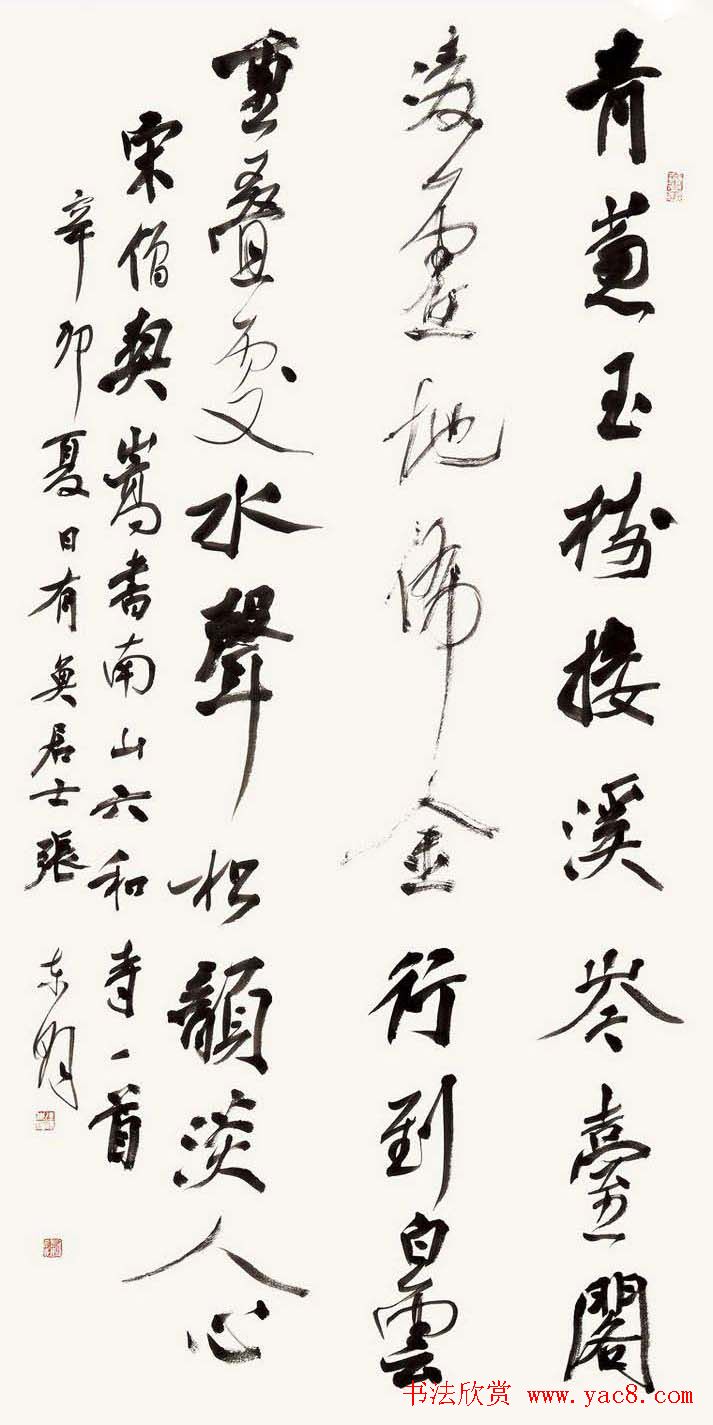 青蔥玉樹接溪岑臺閣
凌虛地佈金行到白雲
重疊處水聲松韻淡人心
宋僧契嵩書南山六和寺一首
辛卯夏日有居士張东明
书法欣赏 www.yac8.com